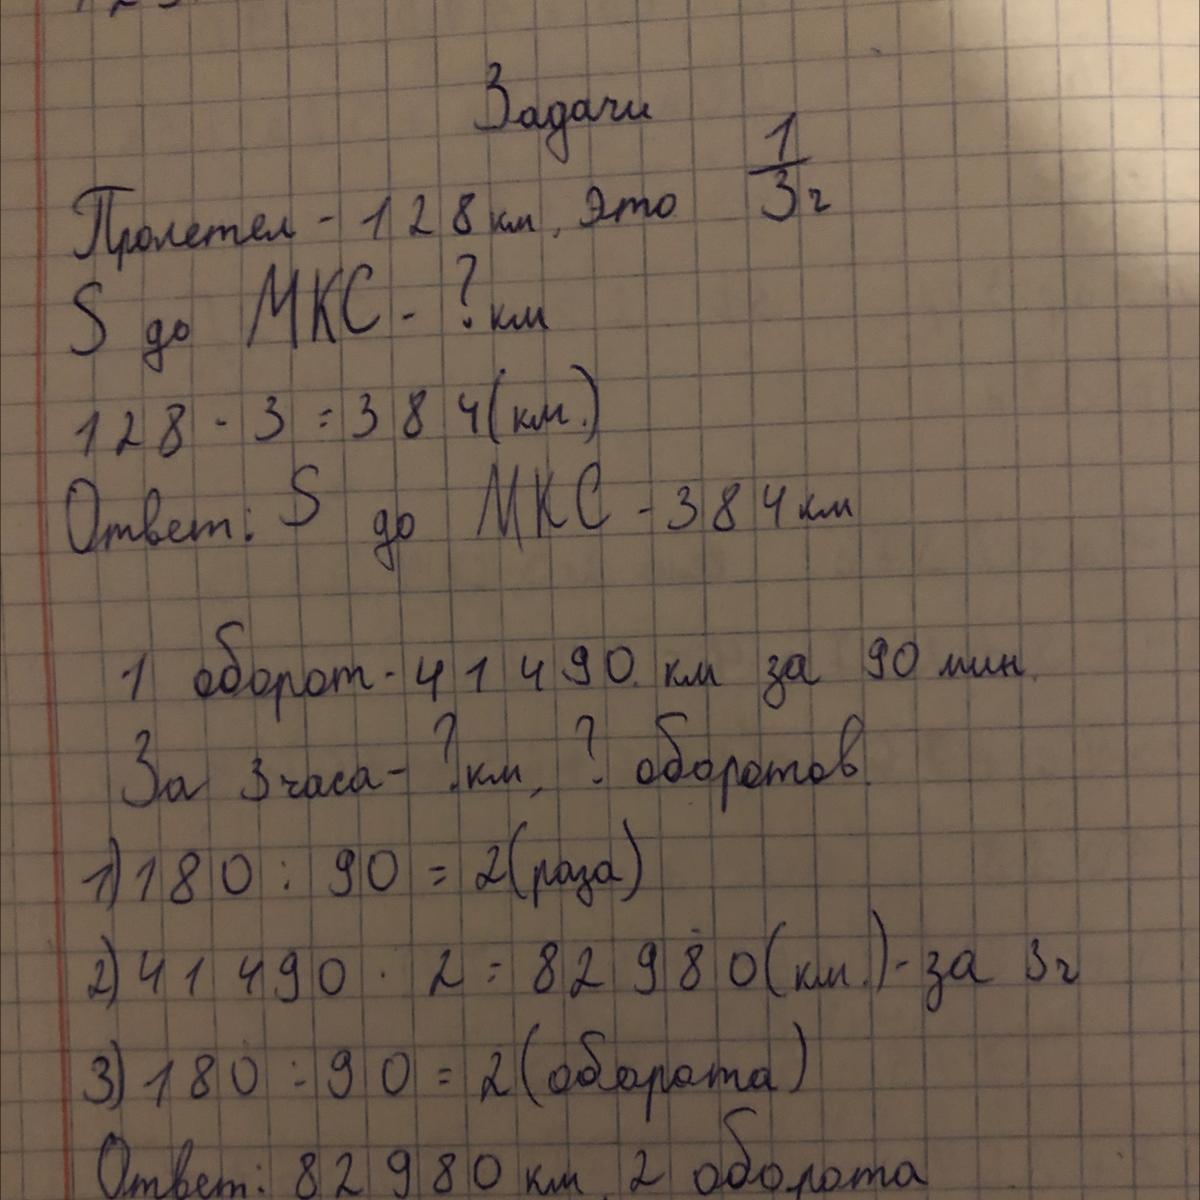 Задачи
Пролетел - 128 км, это 1/3 ч
S до МКС - ? км
128 · 3 = 384 (км.)
Ответ: S до МКС - 384 км
1 оборот - 41490 км за 90 мин.
За 3 часа - ? км, ? оборотов.
1) 180 : 90 = 2 (раза)
2) 41490 · 2 = 82980 (км.) - за 3 ч
3) 180 : 90 = 2 (оборота)
Ответ: 82980 км, 2 оборота